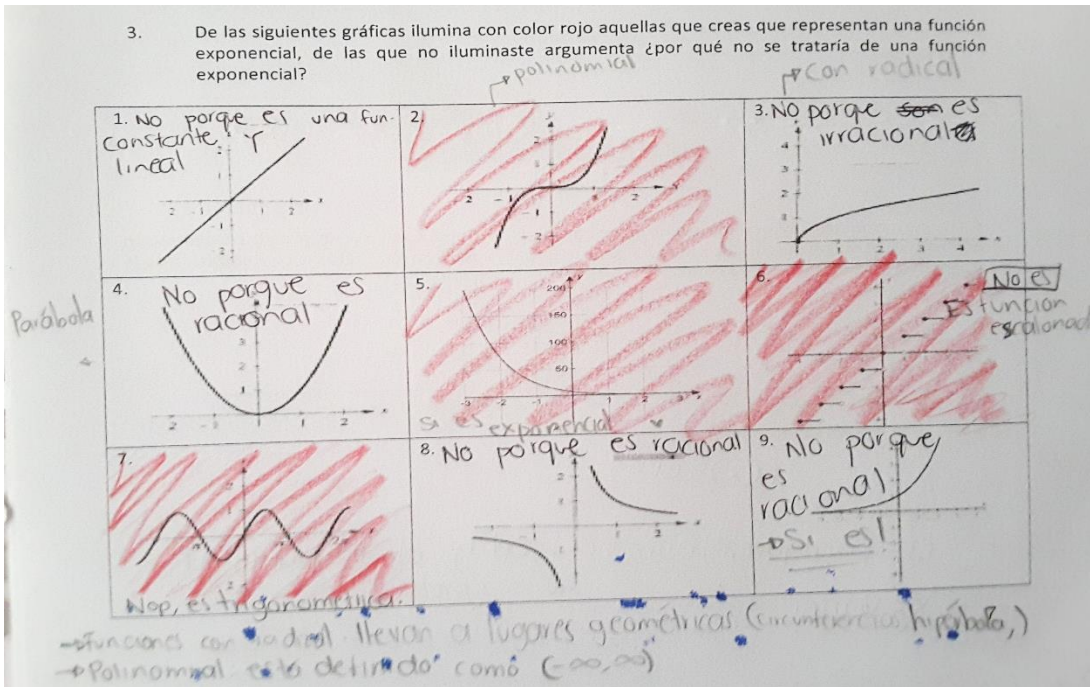 3. De las siguientes gráficas ilumina con color rojo aquellas que creas que representan una función
exponencial, de las que no iluminaste argumenta ¿por qué no se trataría de una función
exponencial?
polinomial
Con radical
1. No porque es una fun.
constante y
lineal
2.
3. No porque es
irracional
4. No porque es
racional
Parábola
5.
200
150
100
50
Si es exponencial
6.
No es
Es función
escalonad
7.
Nop, es trigonométrica.
8. No porque es racional
9. No porque
es
racional
Si es!
funciones con radical llevan a lugares geométricas (circunferencias, hipérbola,)
Polinomial esta definido como (-∞,∞)